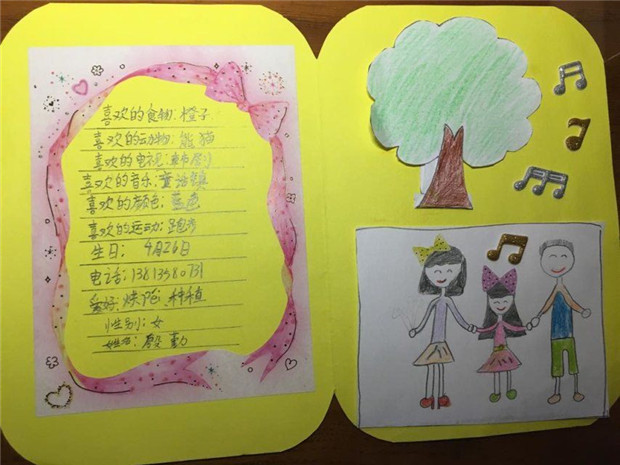 喜欢的食物:橙子
喜欢的动物:熊猫
喜欢的电视:韩剧
喜欢的音乐:童话镇
喜欢的颜色:蓝色
喜欢的运动:跑步
生日: 4月26日
电话:13813580731
爱好: 种植
性别:女
姓名:殷勤